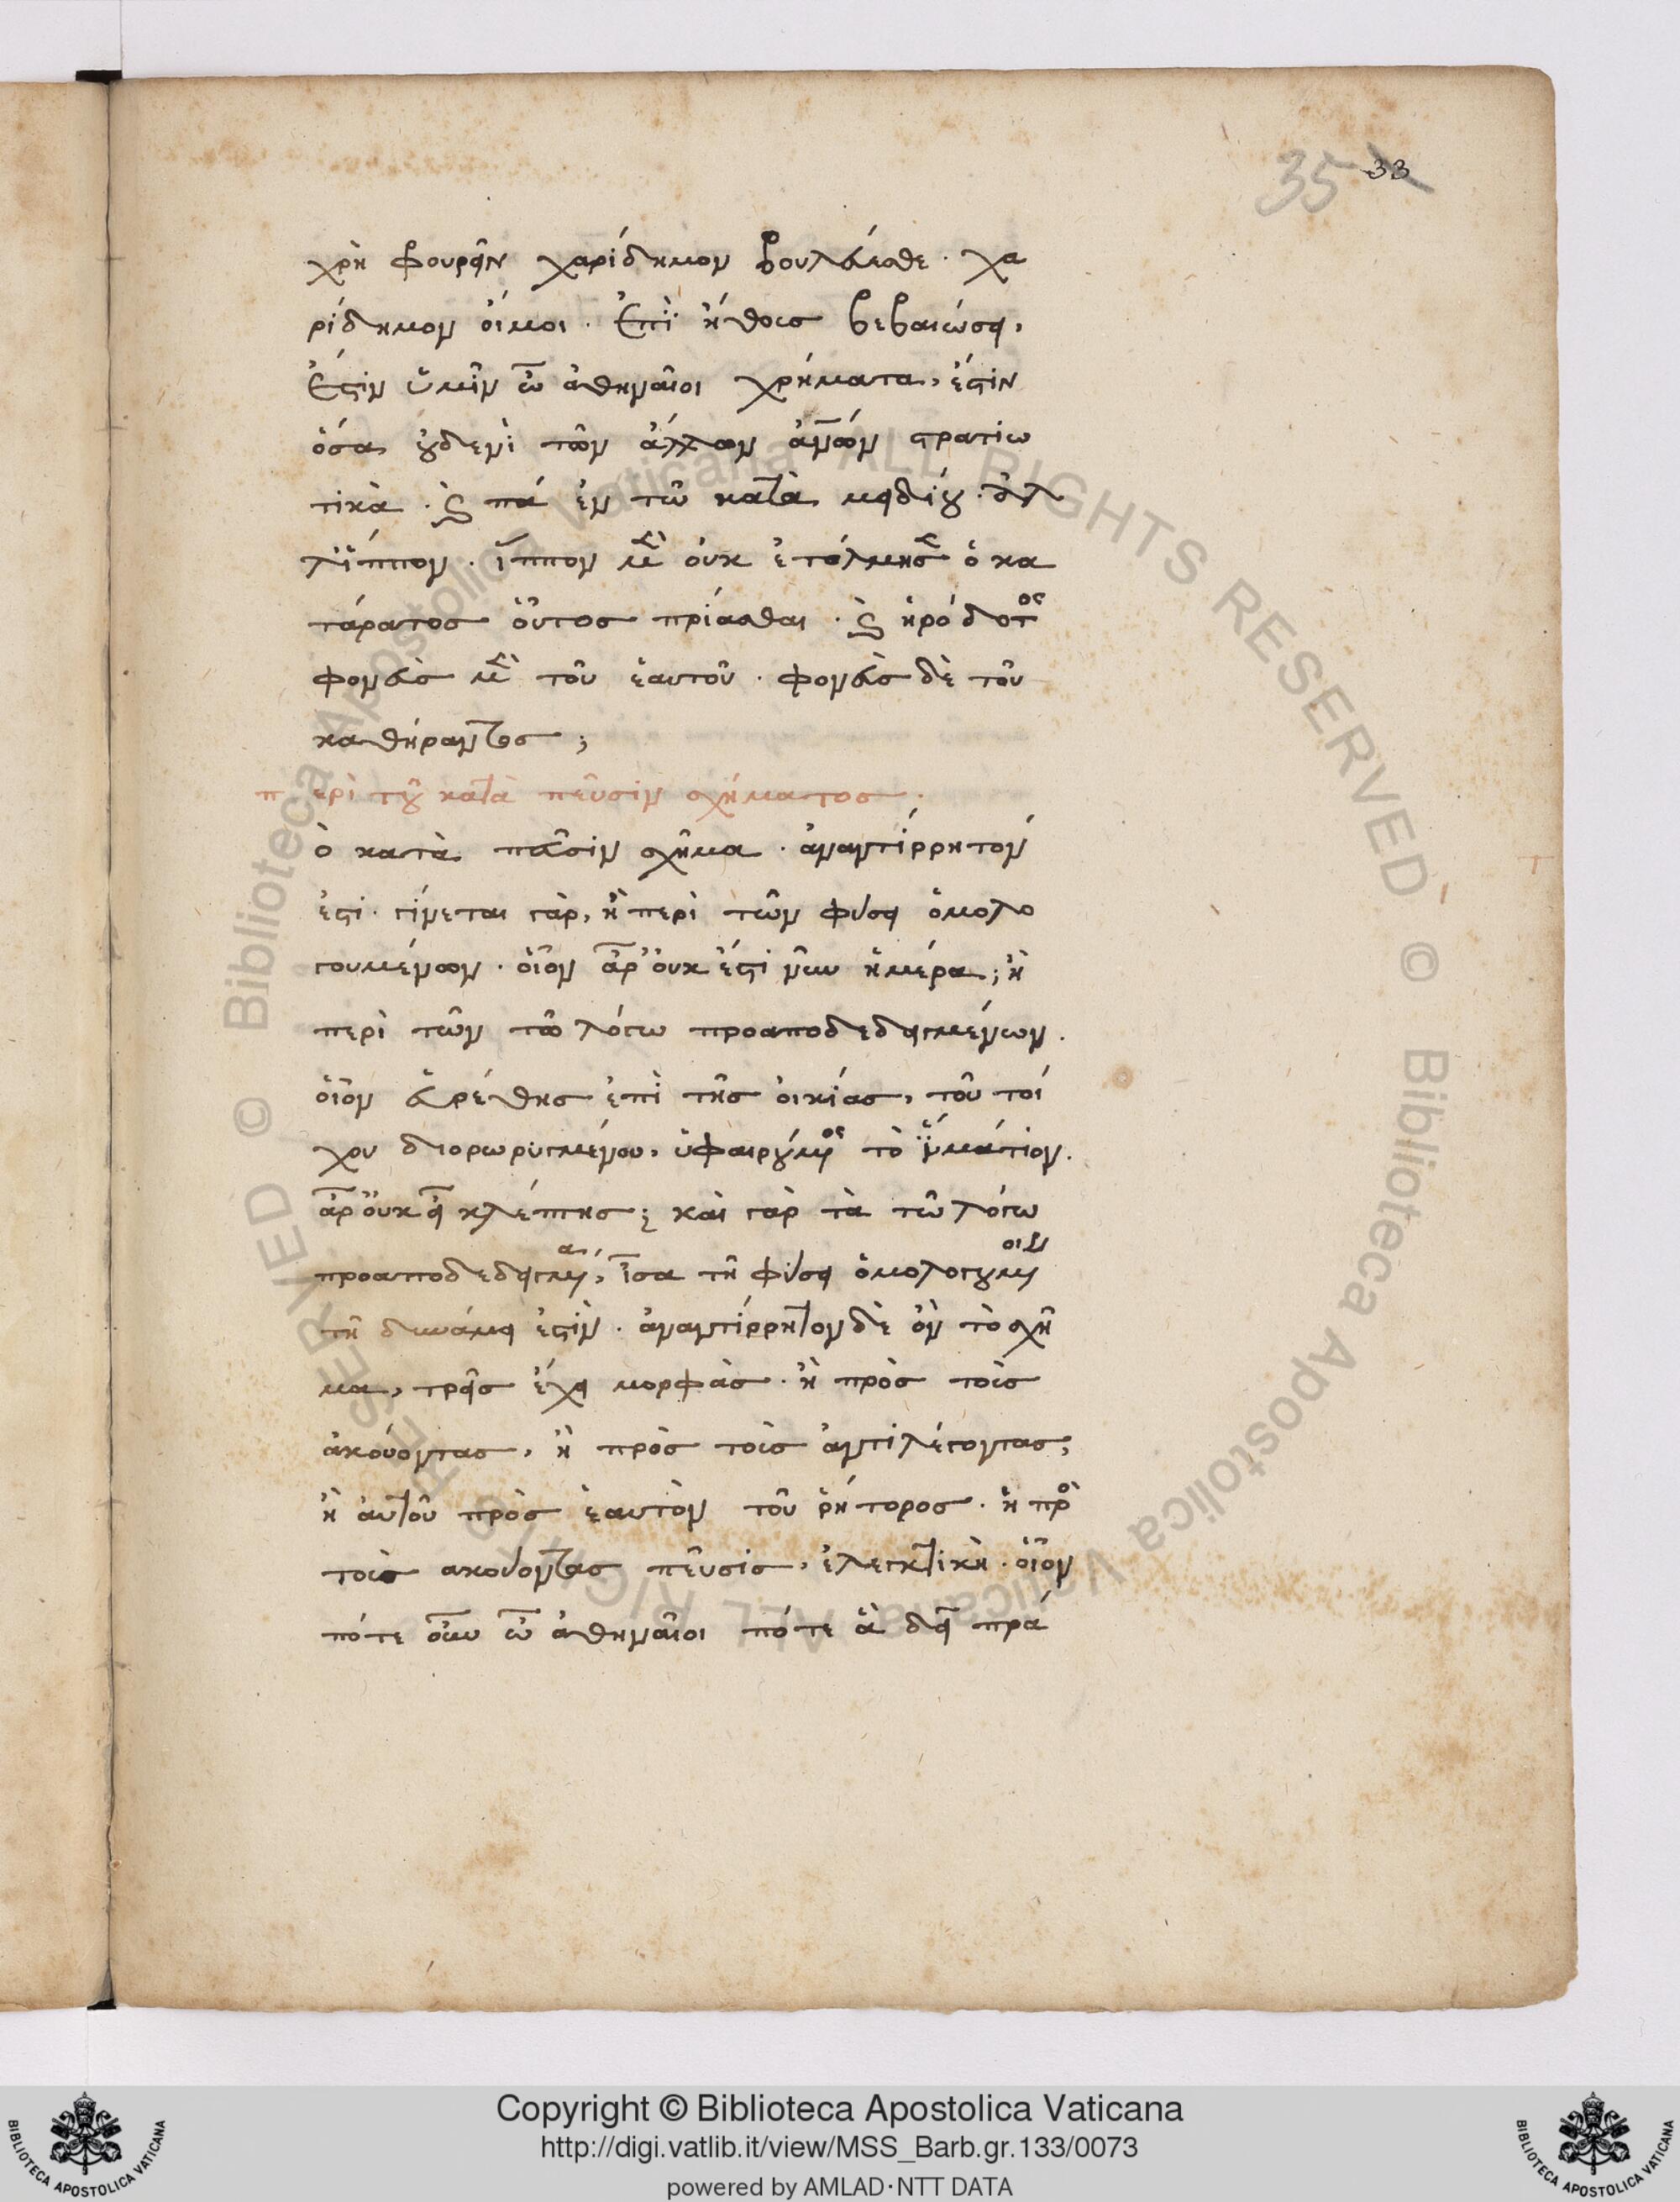 35 33
χρὴ φρουρεῖν χαρίδημον βουλεύεσθε · χα
ρίδημον οἴμοι · Ἐπὶ ἤθους βεβαιώσει,
Ἔστιν ὑμῖν ὦ ἀθηναῖοι χρήματα, ἔστιν
ὅσα οὐδενὶ τῶν ἄλλων ἀνων στρατιω
τικὰ · καὶ πά ἐν τῶ κατὰ μειδίου
ἵππον μὲν οὐκ ἐτόλμησεν ὁ κα
τάρατος οὗτος πρίασθαι · καὶ ἡρόδοτος
φονεὺς μὲν τοῦ ἑαυτοῦ · φονεὺς δὲ τοῦ
καθήραντος ;
περὶ τοῦ κατὰ πεῦσιν σχήματος ·
ὸ κατὰ πεῦσιν σχῆμα · ἀναντίρρητόν
ἐστι · γίνεται γὰρ, ἢ περὶ τῶν φύσει ὁμολο
γουμένων · οἷον ἆρ' οὐκ ἔστι νῦν ἡμέρα ; ἢ
περὶ τῶν τῶ λόγω προαποδεδειγμένων .
οἷον εὑρέθης ἐπὶ τῆς οἰκίας, τοῦ τοί
χου διορωρυγμένου, ὑφαιρούμενος τὸ ἱμάτιον .
ἆρ' οὐκ εἶ κλέπτης ; καὶ γὰρ τὰ τῶ λόγω
προαποδεδειγμένα, ἴσα τῆ φύσει ὁμολογουμένοις
τῆ δυνάμει ἐστὶν · ἀναντίρρητον δὲ ὂν τὸ σχῆ
μα, τρεῖς ἔχει μορφὰς · ἢ πρὸς τοὺς
ἀκούοντας, ἢ πρὸς τοὺς ἀντιλέγοντας ;
ἢ αὐτοῦ πρὸς ἑαυτὸν τοῦ ῥήτορος · ἡ πρὸ
τοὺς ακούοντας πεῦσις, ἐλεγκτικὴ · οἷον
πότε οὖν ὦ ἀθηναῖοι πότε ἃ δεῖ πρά
Copyright © Biblioteca Apostolica Vaticana
http://digi.vatlib.it/view/MSS_Barb.gr.133/0073
powered by AMLAD·NTT DATA
BIBLIOTECA APOSTOLICA VATICANA
BIBLIOTECA APOSTOLICA VATICANA
© Biblioteca Apostolica Vaticana ALL RIGHTS RESERVED © Biblioteca Apostolica Vaticana ALL RIGHTS RESERVED